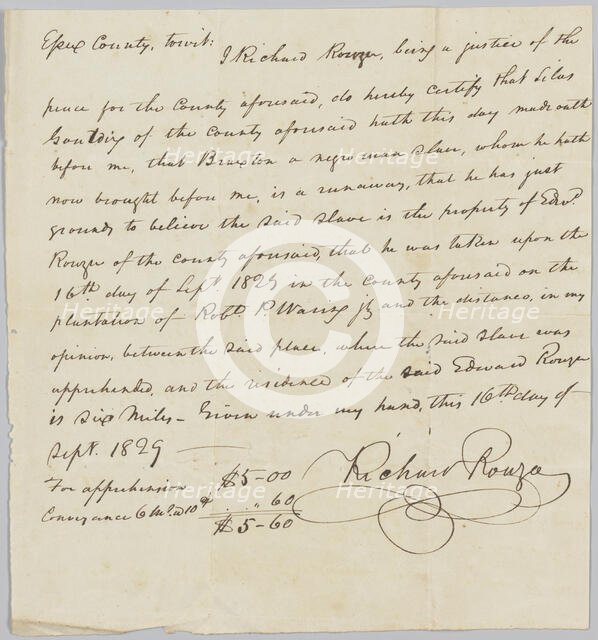 Essex County, towit:
I Richard Rouze, being a justice of the
peace for the County aforesaid, do hereby certify that Silas
Goulding of the County aforesaid hath this day made oath
before me, that Braxton a negro man slave, whom he hath
now brought before me, is a runaway, that he has just
grounds to believe the said slave is the property of Edwd.
Rouze of the county aforesaid, that he was taken upon the
16th day of Sept. 1829 in the County aforesaid on the
plantation of Robt. P. Waring jr, and the distance, in my
opinion, between the said place, where the said slave was
apprehended, and the residence of the said Edward Rouze
is six miles – Given under my hand, this 16th day of
Sept. 1829 –
Richard Rouze
For apprehension $5-00
Conveyance 6 Ms. @ 10 ¢ .. " 60
$5-60
Heritage
Heritage
Heritage
Heritage
Heritage
Heritage
C